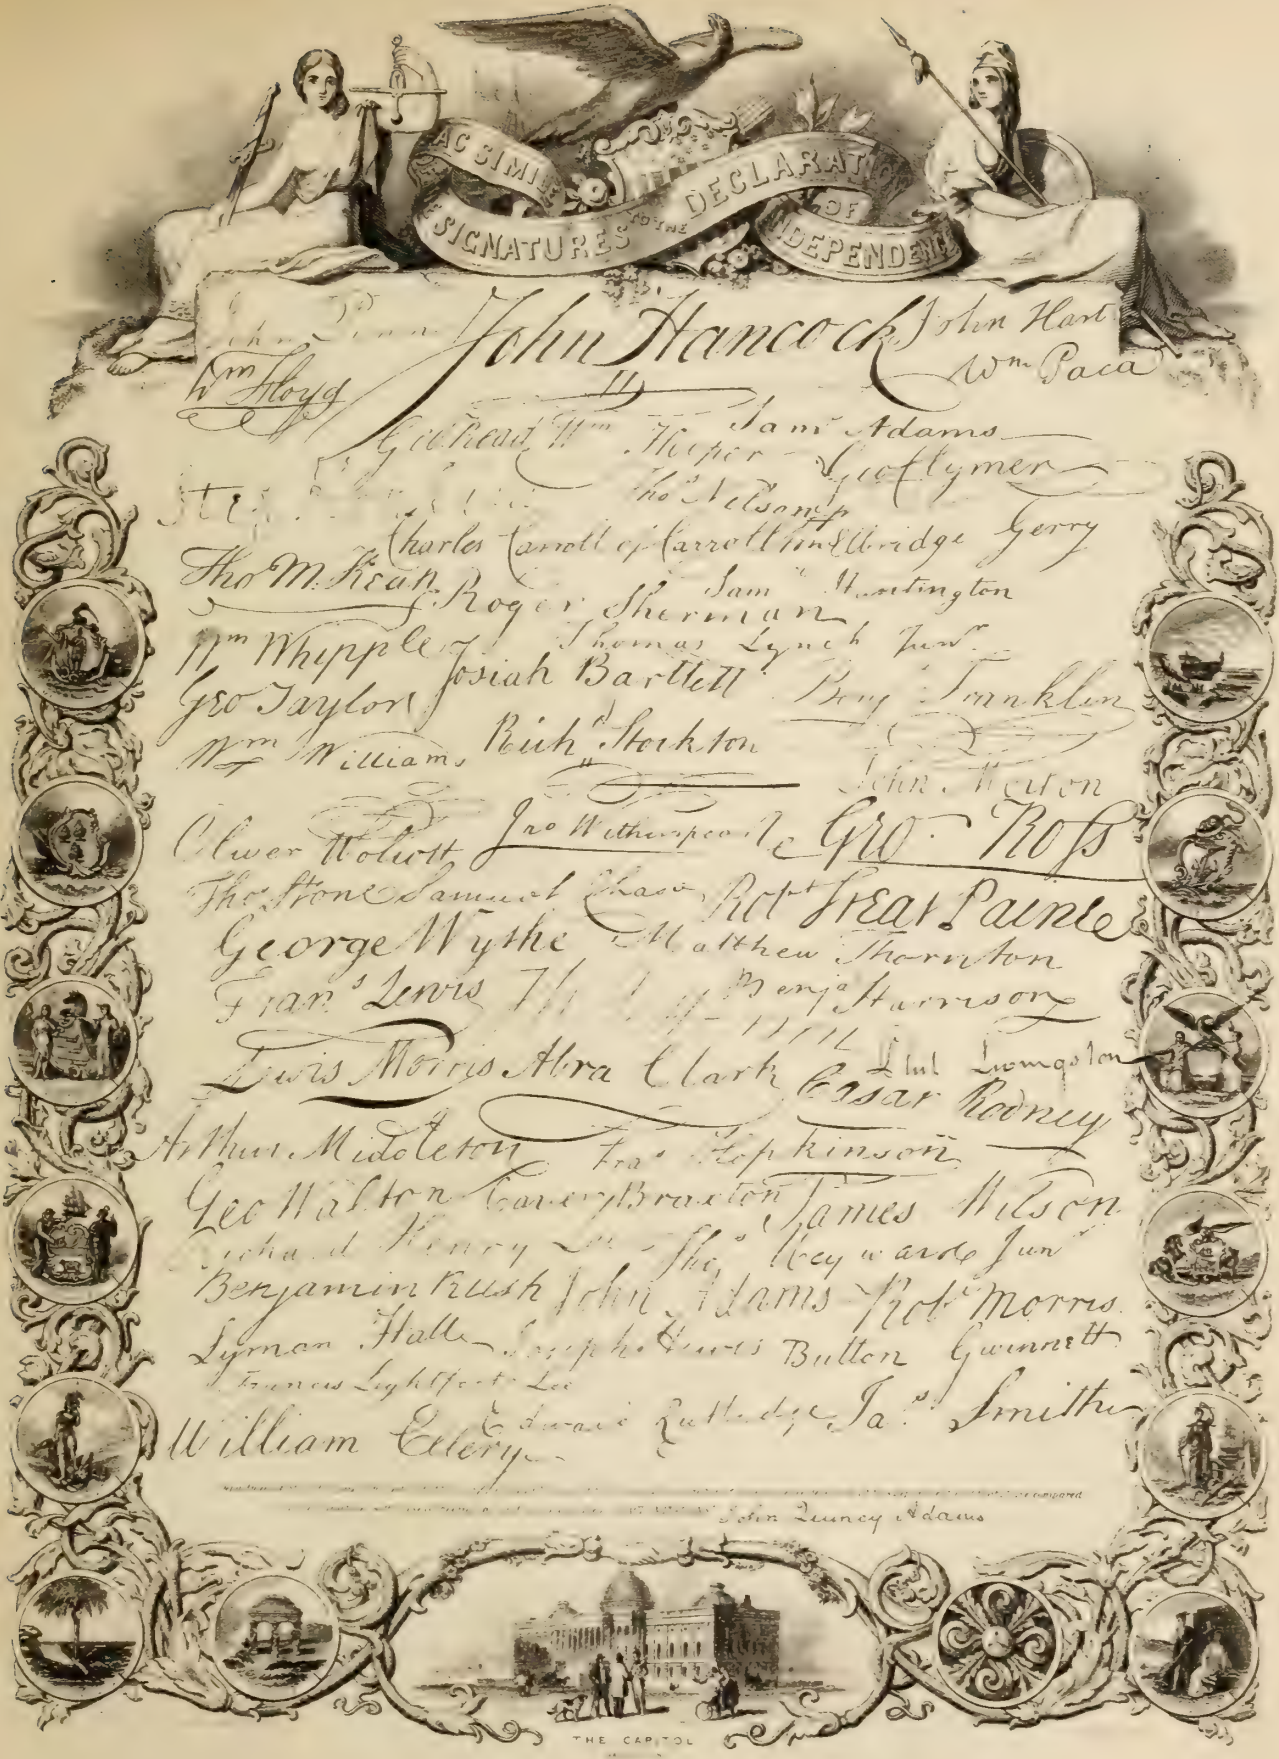 FAC SIMILE
SIGNATURES TO THE DECLARATION
OF
INDEPENDENCE
John Penn John Hancock John Hart
Wm Floyd Wm Paca
Geo Read Wm Hooper Sam Adams
Geo Clymer
Thos Nelson jr
Charles Carroll of Carrollton Elbridge Gerry
Tho M. Kean Roger Sherman Sam Huntington
Wm Whipple Thomas Lynch Junr
Geo Taylor Josiah Bartlett Benj Franklin
Wm Williams Richd Stockton
John Morton
Oliver Wolcott Jno Witherspoon Geo Ross
Thos Stone Samuel Chase Robt Treat Paine
George Wythe Matthew Thornton
Frans Lewis Benja Harrison
Lewis Morris Abra Clark Phil Livingston
Cæsar Rodney
Arthur Middleton Fras Hopkinson
Geo Walton Carter Braxton James Wilson
Richard Henry Lee Thos Heyward Junr
Benjamin Rush John Adams Robt Morris
Lyman Hall Joseph Hewes Button Gwinnett
Francis Lightfoot Lee
William Ellery Edward Rutledge Jas Smith
John Quincy Adams
THE CAPITOL